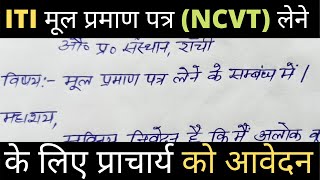 ITI मूल प्रमाण पत्र (NCVT) लेने
औ० प्र० संस्थान, राँची
विषय:- मूल प्रमाण पत्र लेने के सम्बंध में।
महाशय,
सविनय निवेदन है कि मैं अलोक
के लिए प्राचार्य को आवेदन